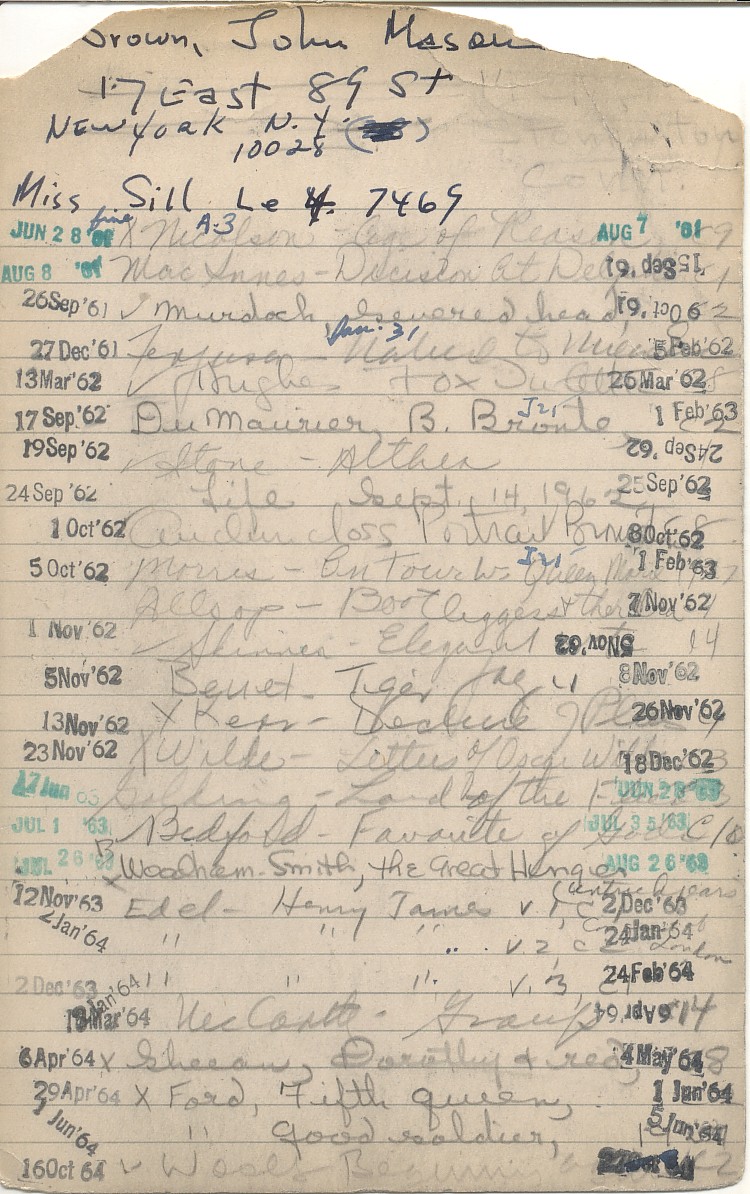 Brown, John Mason
17 East 89 St
NEW YORK N.Y.
10028
Miss Sill Le 4. 7469
fine A3
JUN 28 '61 X Nicolson - Age of Reason AUG 7 '61 9
AUG 8 '61 MacInnes - Decision At Del 15 Sep '61 1
26 Sep '61 ✓ Murdoch, Severed head, 9 Oct '61 2
Jan. 31
27 Dec '61 Ferguson - 5 Feb '62
13 Mar '62 ✓ Hughes Fox In 26 Mar '62 8
J21
17 Sep '62 Du Maurier, B. Bronte 1 Feb '63 2
19 Sep '62 ✓ Stone - Althea 24 Sep '62
24 Sep '62 Life Sept. 14, 1962 25 Sep '62
1 Oct '62 Auchincloss Portrait 8 Oct '62
J21
5 Oct '62 Morris - On Tour w. Queen Mary 1 Feb '63 7
Allsop - Bootleggers & their 7 Nov '62
1 Nov '62 ✓ Skinner - Elegant 5 Nov '62 14
5 Nov '62 Benet - Tiger 8 Nov '62
13 Nov '62 X Kerr - Decline of Pleas 26 Nov '62
23 Nov '62 X Wilde - Letters of Oscar Wilde 18 Dec '62 3
17 Jun 63 Golding - Lord of the JUN 28 '63
JUL 1 '63 B ✓ Bedford - Favorite of Gods C10
JUL 26 '63 X Woodham-Smith, the Great Hunger AUG 26 '63
12 Nov '63 Edel - Henry James v. 1, C 2 Dec '63
2 Jan '64 " " " v. 2, C 24 Jan '64
London
2 Dec '63 " " " v. 3, C 24 Feb '64
Jan '64
Mar '64 McCarthy - Group 6 Apr '64 14
6 Apr '64 X Sheean, Dorothy & red, 4 May '64 8
29 Apr '64 X Ford, Fifth queen, 1 Jun '64
1 Jun '64 " Good soldier, 5 Jun '64
16 Oct 64 ✓ Woolf Beginning 2